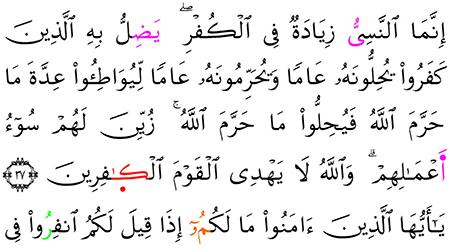 إِنَّمَا ٱلنَّسِىُّ زِيَادَةٌ فِى ٱلْكُفْرِ ۖ يَضِلُّ بِهِ ٱلَّذِينَ
كَفَرُوا۟ يُحِلُّونَهُۥ عَامًا وَيُحَرِّمُونَهُۥ عَامًا لِّيُوَاطِـُٔوا۟ عِدَّةَ مَا
حَرَّمَ ٱللَّهُ فَيُحِلُّوا۟ مَا حَرَّمَ ٱللَّهُ ۚ زُيِّنَ لَهُمْ سُوٓءُ
أَعْمَـٰلِهِمْ ۗ وَٱللَّهُ لَا يَهْدِى ٱلْقَوْمَ ٱلْكَـٰفِرِينَ ٣٧
يَـٰٓأَيُّهَا ٱلَّذِينَ ءَامَنُوا۟ مَا لَكُمُۥٓ إِذَا قِيلَ لَكُمُ ٱنفِرُوا۟ فِى